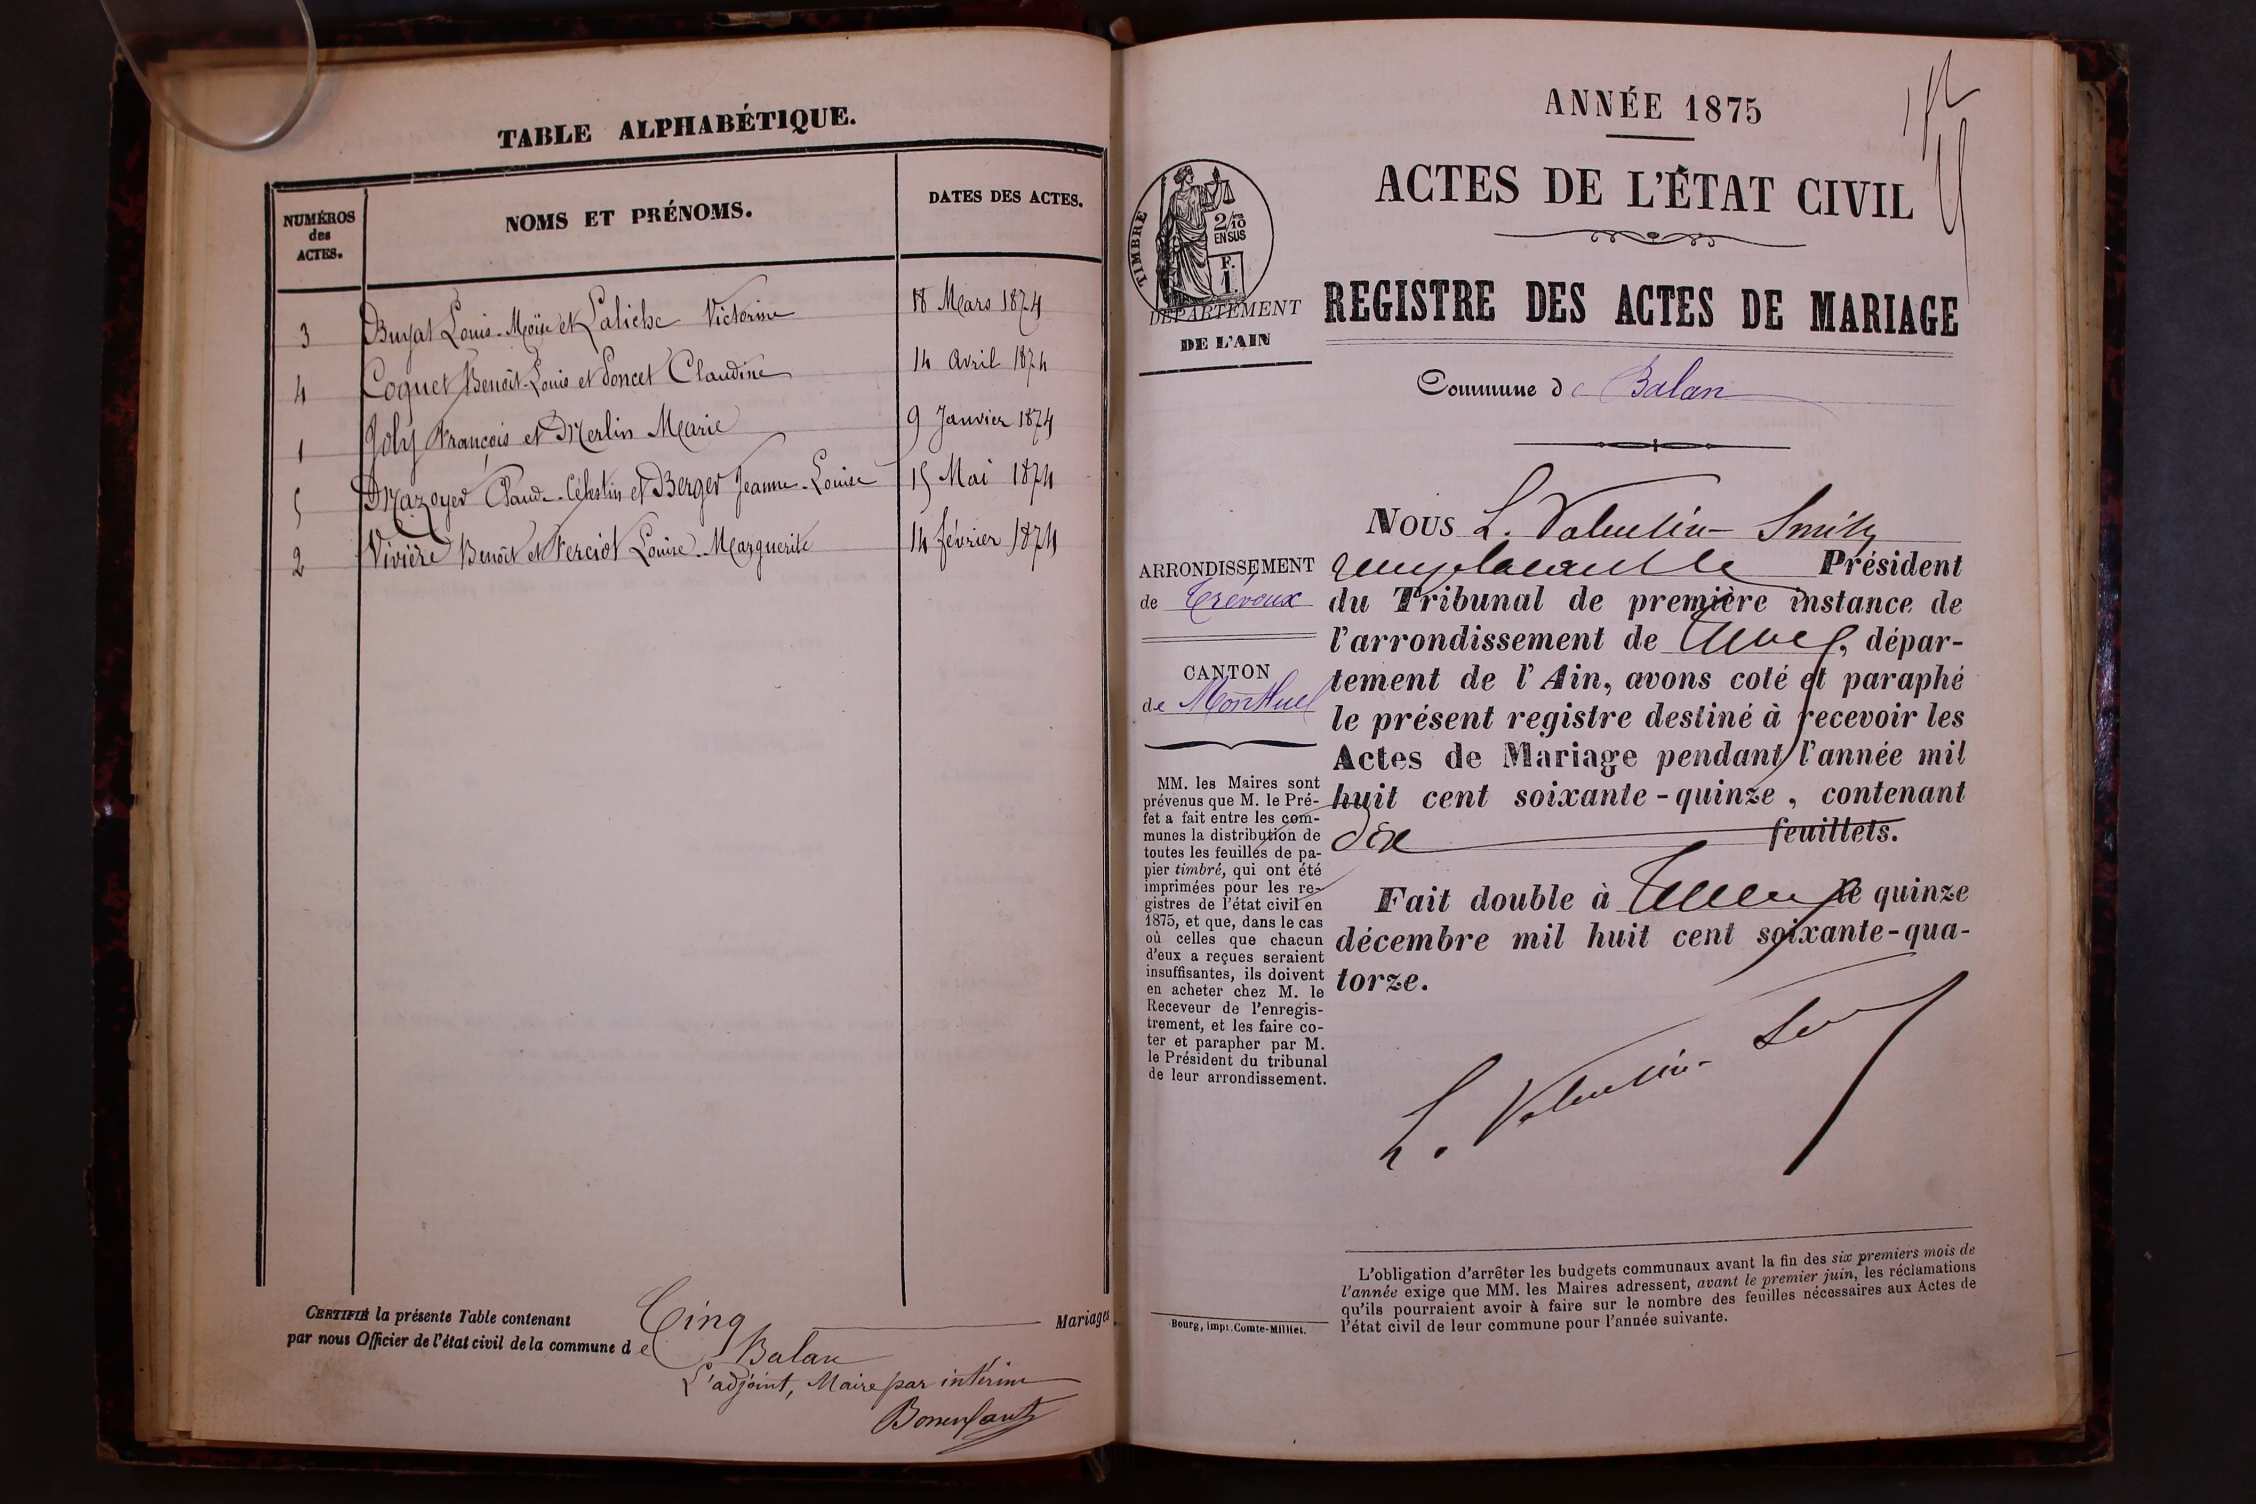 TABLE ALPHABÉTIQUE.
NUMÉROS
des
ACTES.
NOMS ET PRÉNOMS.
DATES DES ACTES.
3 Buyat Louis-Moïse et Laliche Victorine 18 Mars 1874
4 Coquet Benoît-Louis et Poncet Claudine 14 Avril 1874
1 Joly François et Merlin Marie 9 Janvier 1874
5 Mazoyer Claude-Célestin et Berger Jeanne-Louise 15 Mai 1874
2 Vivière Benoît et Ferciot Louise-Marguerite 14 février 1874
CERTIFIÉ la présente Table contenant Cinq Mariages
par nous Officier de l'état civil de la commune de Balan
L'adjoint, Maire par intérim
Bonenfant
ANNÉE 1875
ACTES DE L'ÉTAT CIVIL
TIMBRE
2/10
EN SUS
F.
1
DÉPARTEMENT
DE L'AIN
REGISTRE DES ACTES DE MARIAGE
Commune de Balan
ARRONDISSEMENT
de Trévoux
CANTON
de Montluel
MM. les Maires sont
prévenus que M. le Pré-
fet a fait entre les com-
munes la distribution de
toutes les feuilles de pa-
pier timbré, qui ont été
imprimées pour les re-
gistres de l'état civil en
1875, et que, dans le cas
où celles que chacun
d'eux a reçues seraient
insuffisantes, ils doivent
en acheter chez M. le
Receveur de l'enregis-
trement, et les faire co-
ter et parapher par M.
le Président du tribunal
de leur arrondissement.
Nous L. Valentin-Smith
remplaçant le Président
du Tribunal de première instance de
l'arrondissement de Trévoux, dépar-
tement de l'Ain, avons coté et paraphé
le présent registre destiné à recevoir les
Actes de Mariage pendant l'année mil
huit cent soixante-quinze, contenant
dix feuillets.
Fait double à Trévoux le quinze
décembre mil huit cent soixante-qua-
torze.
L. Valentin-Smith
L'obligation d'arrêter les budgets communaux avant la fin des six premiers mois de
l'année exige que MM. les Maires adressent, avant le premier juin, les réclamations
qu'ils pourraient avoir à faire sur le nombre des feuilles nécessaires aux Actes de
l'état civil de leur commune pour l'année suivante.
Bourg, impr. Comte-Milliet.